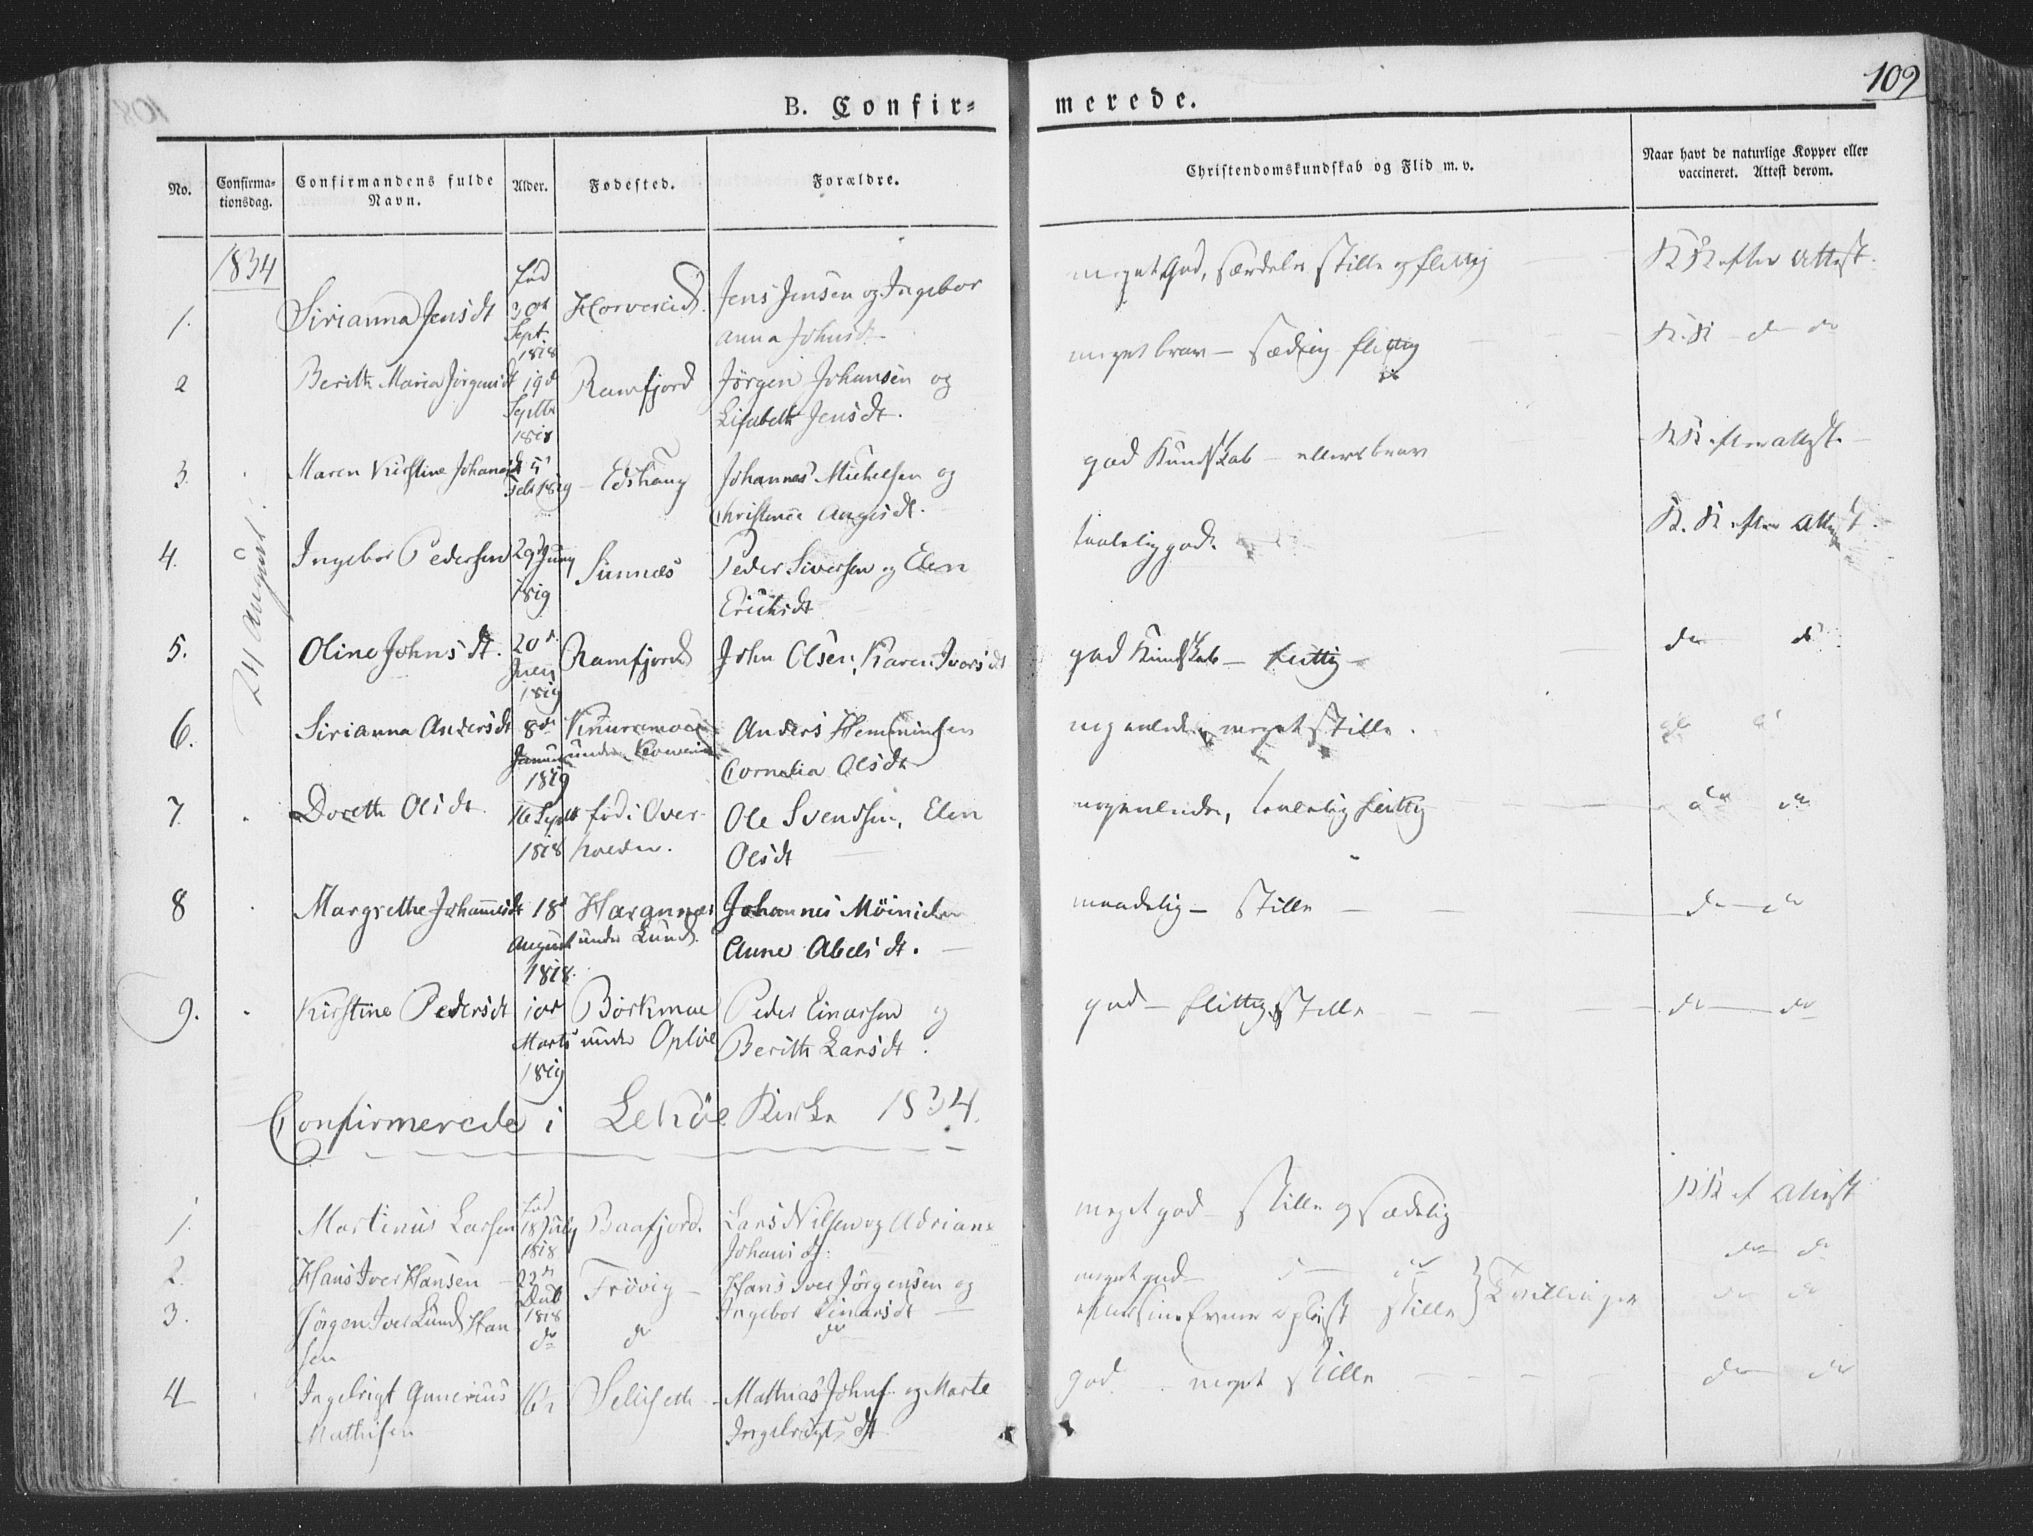 109
B. Confir-
merede.
No.
Confirma-
tionsdag.
Confirmandens fulde
Navn.
Alder.
Fødested.
Forældre.
Christendomskundskab og Flid m. v.
Naar havt de naturlige Kopper eller
vaccineret. Attest derom.
1834
24 August
1. Sirianna Jensdt fød 30te Sept. 1818 Horvereid. Jens Jensen og Ingebor
anna Johnsd.
meget god, særdeles stille og flittig
KK efter Attest.
2 Berith Maria Jørgensdt 19d Septbr 1818 Ramfjord Jørgen Johansen og
Lisabeth Jensdt.
meget brav - sædelig flittig
K.K - do do
3. Maren Kirstine Johansdt 5 Feb 1819 - Edshaug Johannes Michelsen og
Christence Angelsdt.
god Kundskab - ellers brav
KK efter attest.
4. Ingebor Pedersen 29d Juny 1819 Sunnæs Peder Siversen og Elen
Erichsdt
taalelig godt.
K. K efter Attest.
5. Oline Johnsdt. 20d. 1819 Ramfjord John Olsen, Karen Iversdt
god Kundskab - flittig -
do do
6. Sirianna Andersdt 8de Januar 1819 under
Anders Hemminsen
Cornelia Olsdt
nogenledes, meget stille.
do do
7. Doreth Olsdt 16 Septbr 1818 fød i Over-
halden.
Ole Svendsen, Elen
Olsdt
nogenledes, taalelig flittig
do do
8 Margrethe Johannesdt 18d August 1818. under Lund.
Johannes
Anne Abelsdt.
maadelig - stille -
do do
9. Kirstine Pedersdt 10de Marts 1819 Børkmoe
under Opløe
Peder Einersen og
Berith Larsdt.
god - flittig, stille
do do
Confirmerede i Lekøe Kirke 1834.
1. Martinus Larsen fød 18 July 1818 Baafjord. Lars Nilsen og Adriane
Johansdt.
meget god - stille og sædelig
KK ef Attest
2. Hans Iver Hansen 22d 1818 Frøvig - Hans Iver Jørgensen og
Ingebor Einarsdt
meget god
do do
3. Jørgen Iver Lund Han
sen
do do do
Evner stille } Tvillinger
do do
4 Ingebrigt Gunerius
Mathisen
16½ Seliseth - Mathias Johns. og Marte
Ingebrigtsdt
god - meget stille
do do